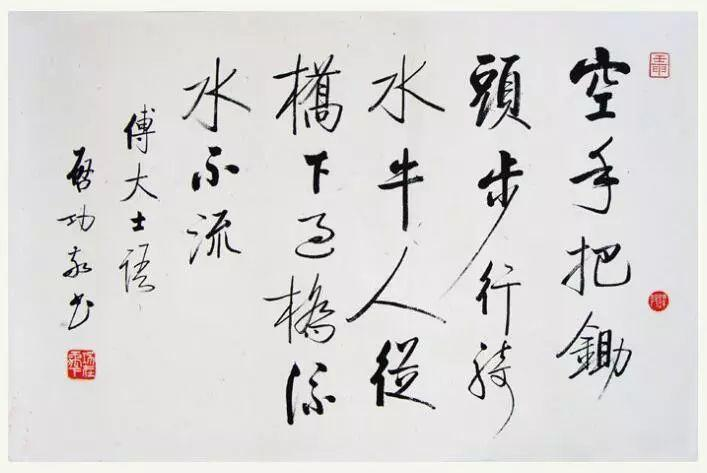 空手把鋤
頭步行騎
水牛人從
橋下過橋流
水不流
傅大士語
啟功敬書